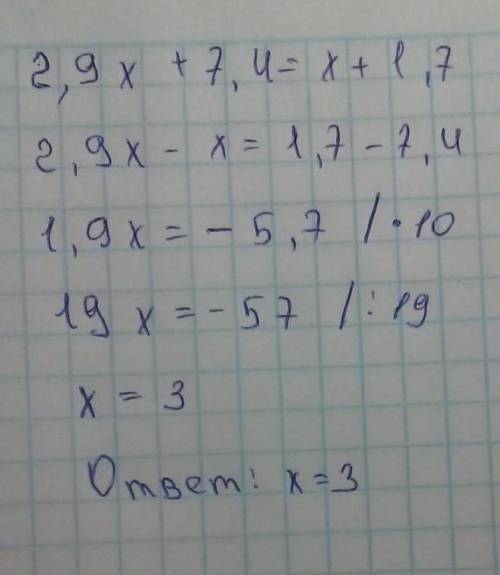 2,9x + 7,4 = x + 1,7
2,9x - x = 1,7 - 7,4
1,9x = - 5,7 / · 10
19 x = - 57 / : 19
x = 3
Ответ: x = 3